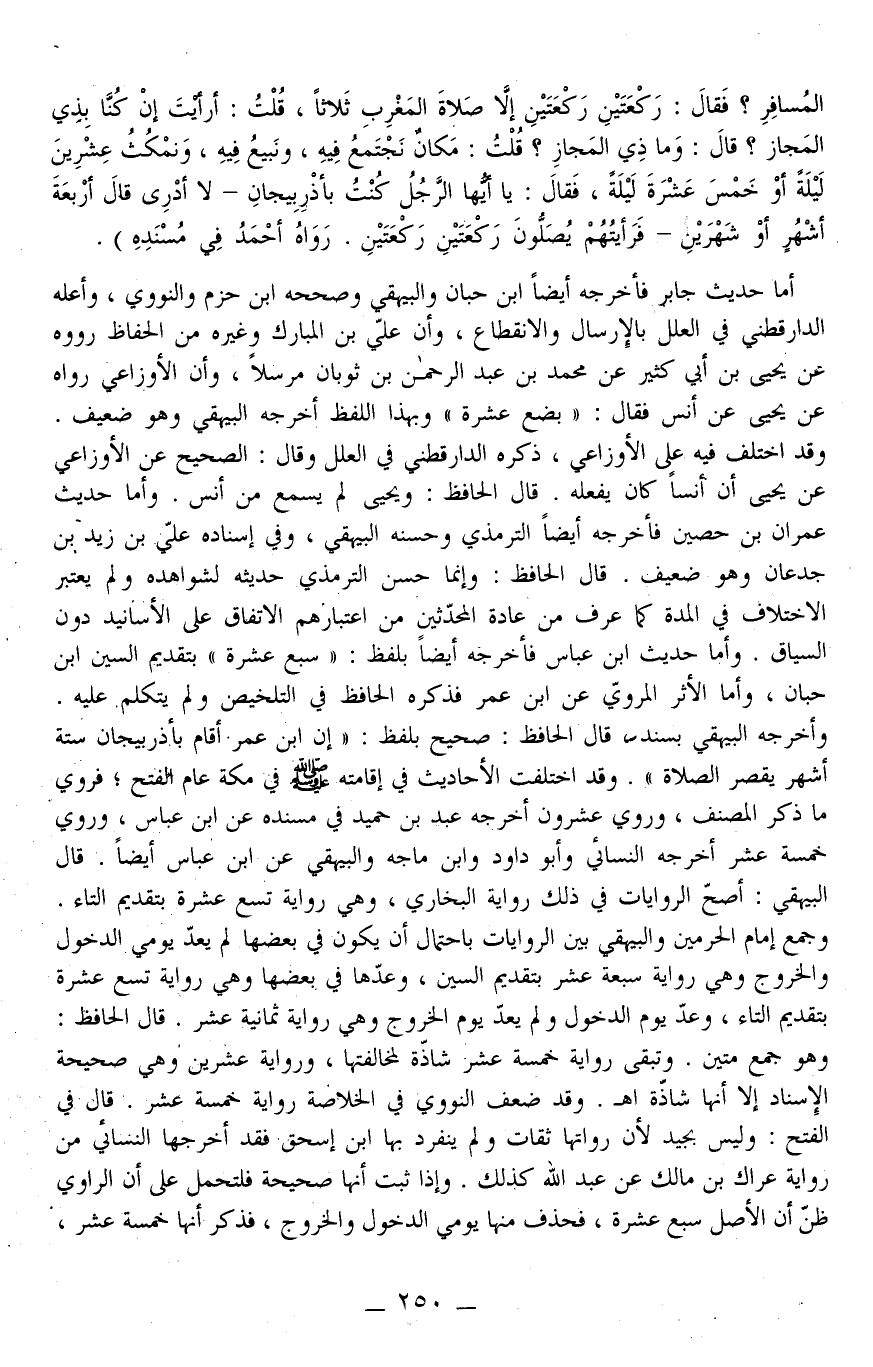 المُسافِرِ ؟ فَقالَ : رَكْعَتَيْنِ رَكْعَتَيْنِ إلَّا صَلاةَ المَغْرِبِ ثَلاثاً ، قُلْتُ : أرأيْتَ إنْ كُنَّا بِذِي
المَجازِ ؟ قالَ : وَما ذِي المَجازِ ؟ قُلْتُ : مَكانٌ نَجْتَمعُ فِيهِ ، ونَبيعُ فِيهِ ، وَنمْكُثُ عِشْرِينَ
لَيْلَةً أوْ خَمْسَ عَشْرَةَ لَيْلَةً ، فَقالَ : يا أيُّها الرَّجُلُ كُنْتُ بأذْرِبِيجانِ – لا أدْرِى قالَ أرْبعَةَ
أشْهُرٍ أوْ شَهْرَيْنِ – فَرَأيتُهُمْ يُصَلُّونَ رَكْعَتَيْنِ رَكْعَتَيْنِ . رَوَاهُ أحْمَدُ فِي مُسْنَدِهِ ) .
أما حديث جابر فأخرجه أيضاً ابن حبان والبيهقي وصححه ابن حزم والنووي ، وأعله
الدارقطني في العلل بالإِرسال والانقطاع ، وأن عليّ بن المبارك وغيره من الحفاظ رووه
عن يحيى بن أبي كثير عن محمد بن عبد الرحمـٰن بن ثوبان مرسلاً ، وأن الأوزاعي رواه
عن يحيى عن أنس فقال : « بضع عشرة » وبهذا اللفظ أخرجه البيهقي وهو ضعيف .
وقد اختلف فيه على الأوزاعي ، ذكره الدارقطني في العلل وقال : الصحيح عن الأوزاعي
عن يحيى أن أنساً كان يفعله . قال الحافظ : ويحيى لم يسمع من أنس . وأما حديث
عمران بن حصين فأخرجه أيضاً الترمذي وحسنه البيهقي ، وفي إسناده عليّ بن زيد بن
جدعان وهو ضعيف . قال الحافظ : وإنما حسن الترمذي حديثه لشواهده ولم يعتبر
الاختلاف في المدة كما عرف من عادة المحدّثين من اعتبارهم الاتفاق على الأسانيد دون
السياق . وأما حديث ابن عباس فأخرجه أيضاً بلفظ : « سبع عشرة » بتقديم السين ابن
حبان ، وأما الأثر المرويّ عن ابن عمر فذكره الحافظ في التلخيص ولم يتكلم عليه .
وأخرجه البيهقي بسند قال الحافظ : صحيح بلفظ : « إن ابن عمر أقام بأذربيجان ستة
أشهر يقصر الصلاة » . وقد اختلفت الأحاديث في إقامته ﷺ في مكة عام الفتح ؛ فروي
ما ذكر المصنف ، وروي عشرون أخرجه عبد بن حميد في مسنده عن ابن عباس ، وروي
خمسة عشر أخرجه النسائي وأبو داود وابن ماجه والبيهقي عن ابن عباس أيضاً . قال
البيهقي : أصحّ الروايات في ذلك رواية البخاري ، وهي رواية تسع عشرة بتقديم التاء .
وجمع إمام الحرمين والبيهقي بين الروايات باحتمال أن يكون في بعضها لم يعدّ يومي الدخول
والخروج وهي رواية سبعة عشر بتقديم السين ، وعدّها في بعضها وهي رواية تسع عشرة
بتقديم التاء ، وعدّ يوم الدخول ولم يعدّ يوم الخروج وهي رواية ثمانية عشر . قال الحافظ :
وهو جمع متين . وتبقى رواية خمسة عشر شاذّة لمخالفتها ، ورواية عشرين وهي صحيحة
الإِسناد إلا أنها شاذّة اهـ . وقد ضعف النووي في الخلاصة رواية خمسة عشر . قال في
الفتح : وليس بجيد لأن رواتها ثقات ولم ينفرد بها ابن إسحق فقد أخرجها النسائي من
رواية عراك بن مالك عن عبد الله كذلك . وإذا ثبت أنها صحيحة فلتحمل على أن الراوي
ظنّ أن الأصل سبع عشرة ، فحذف منها يومي الدخول والخروج ، فذكر أنها خمسة عشر ،
– ٢٥٠ –